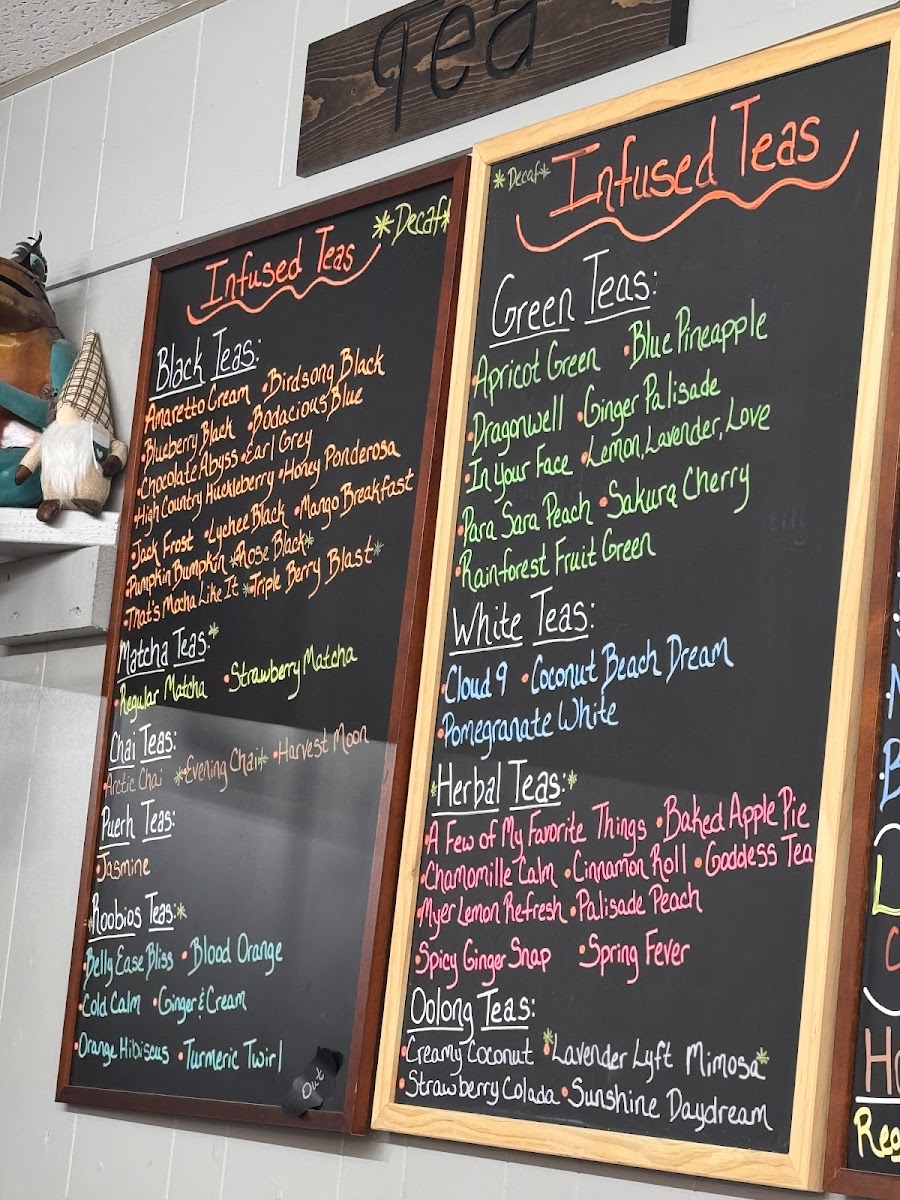 Tea
Infused Teas
*Decaf*
Black Teas:
Amaretto Cream •Birdsong Black
•Blueberry Black •Bodacious Blue
•Chocolate Abyss •Earl Grey
•High Country Huckleberry •Honey Ponderosa
•Jack Frost •Lychee Black •Mango Breakfast
•Pumpkin Bumpkin *Rose Black*
•That's Mocha Like It *Triple Berry Blast*
Matcha Teas:*
•Regular Matcha •Strawberry Matcha
Chai Teas:
•Arctic Chai *Evening Chai* •Harvest Moon
Puerh Teas:
•Jasmine
*Roobios Teas:*
•Belly Ease Bliss •Blood Orange
•Cold Calm •Ginger & Cream
•Orange Hibiscus •Turmeric Twirl
Out
*Decaf* Infused Teas
Green Teas:
•Apricot Green •Blue Pineapple
•Dragonwell •Ginger Palisade
•In Your Face •Lemon, Lavender, Love
•Para Sara Peach •Sakura Cherry
•Rainforest Fruit Green
White Teas:
•Cloud 9 •Coconut Beach Dream
•Pomegranate White
*Herbal Teas:*
•A Few of My Favorite Things •Baked Apple Pie
•Chamomille Calm •Cinnamon Roll •Goddess Tea
•Myer Lemon Refresh •Palisade Peach
•Spicy Ginger Snap •Spring Fever
Oolong Teas:
•Creamy Coconut *Lavender Lyft Mimosa*
•Strawberry Colada •Sunshine Daydream